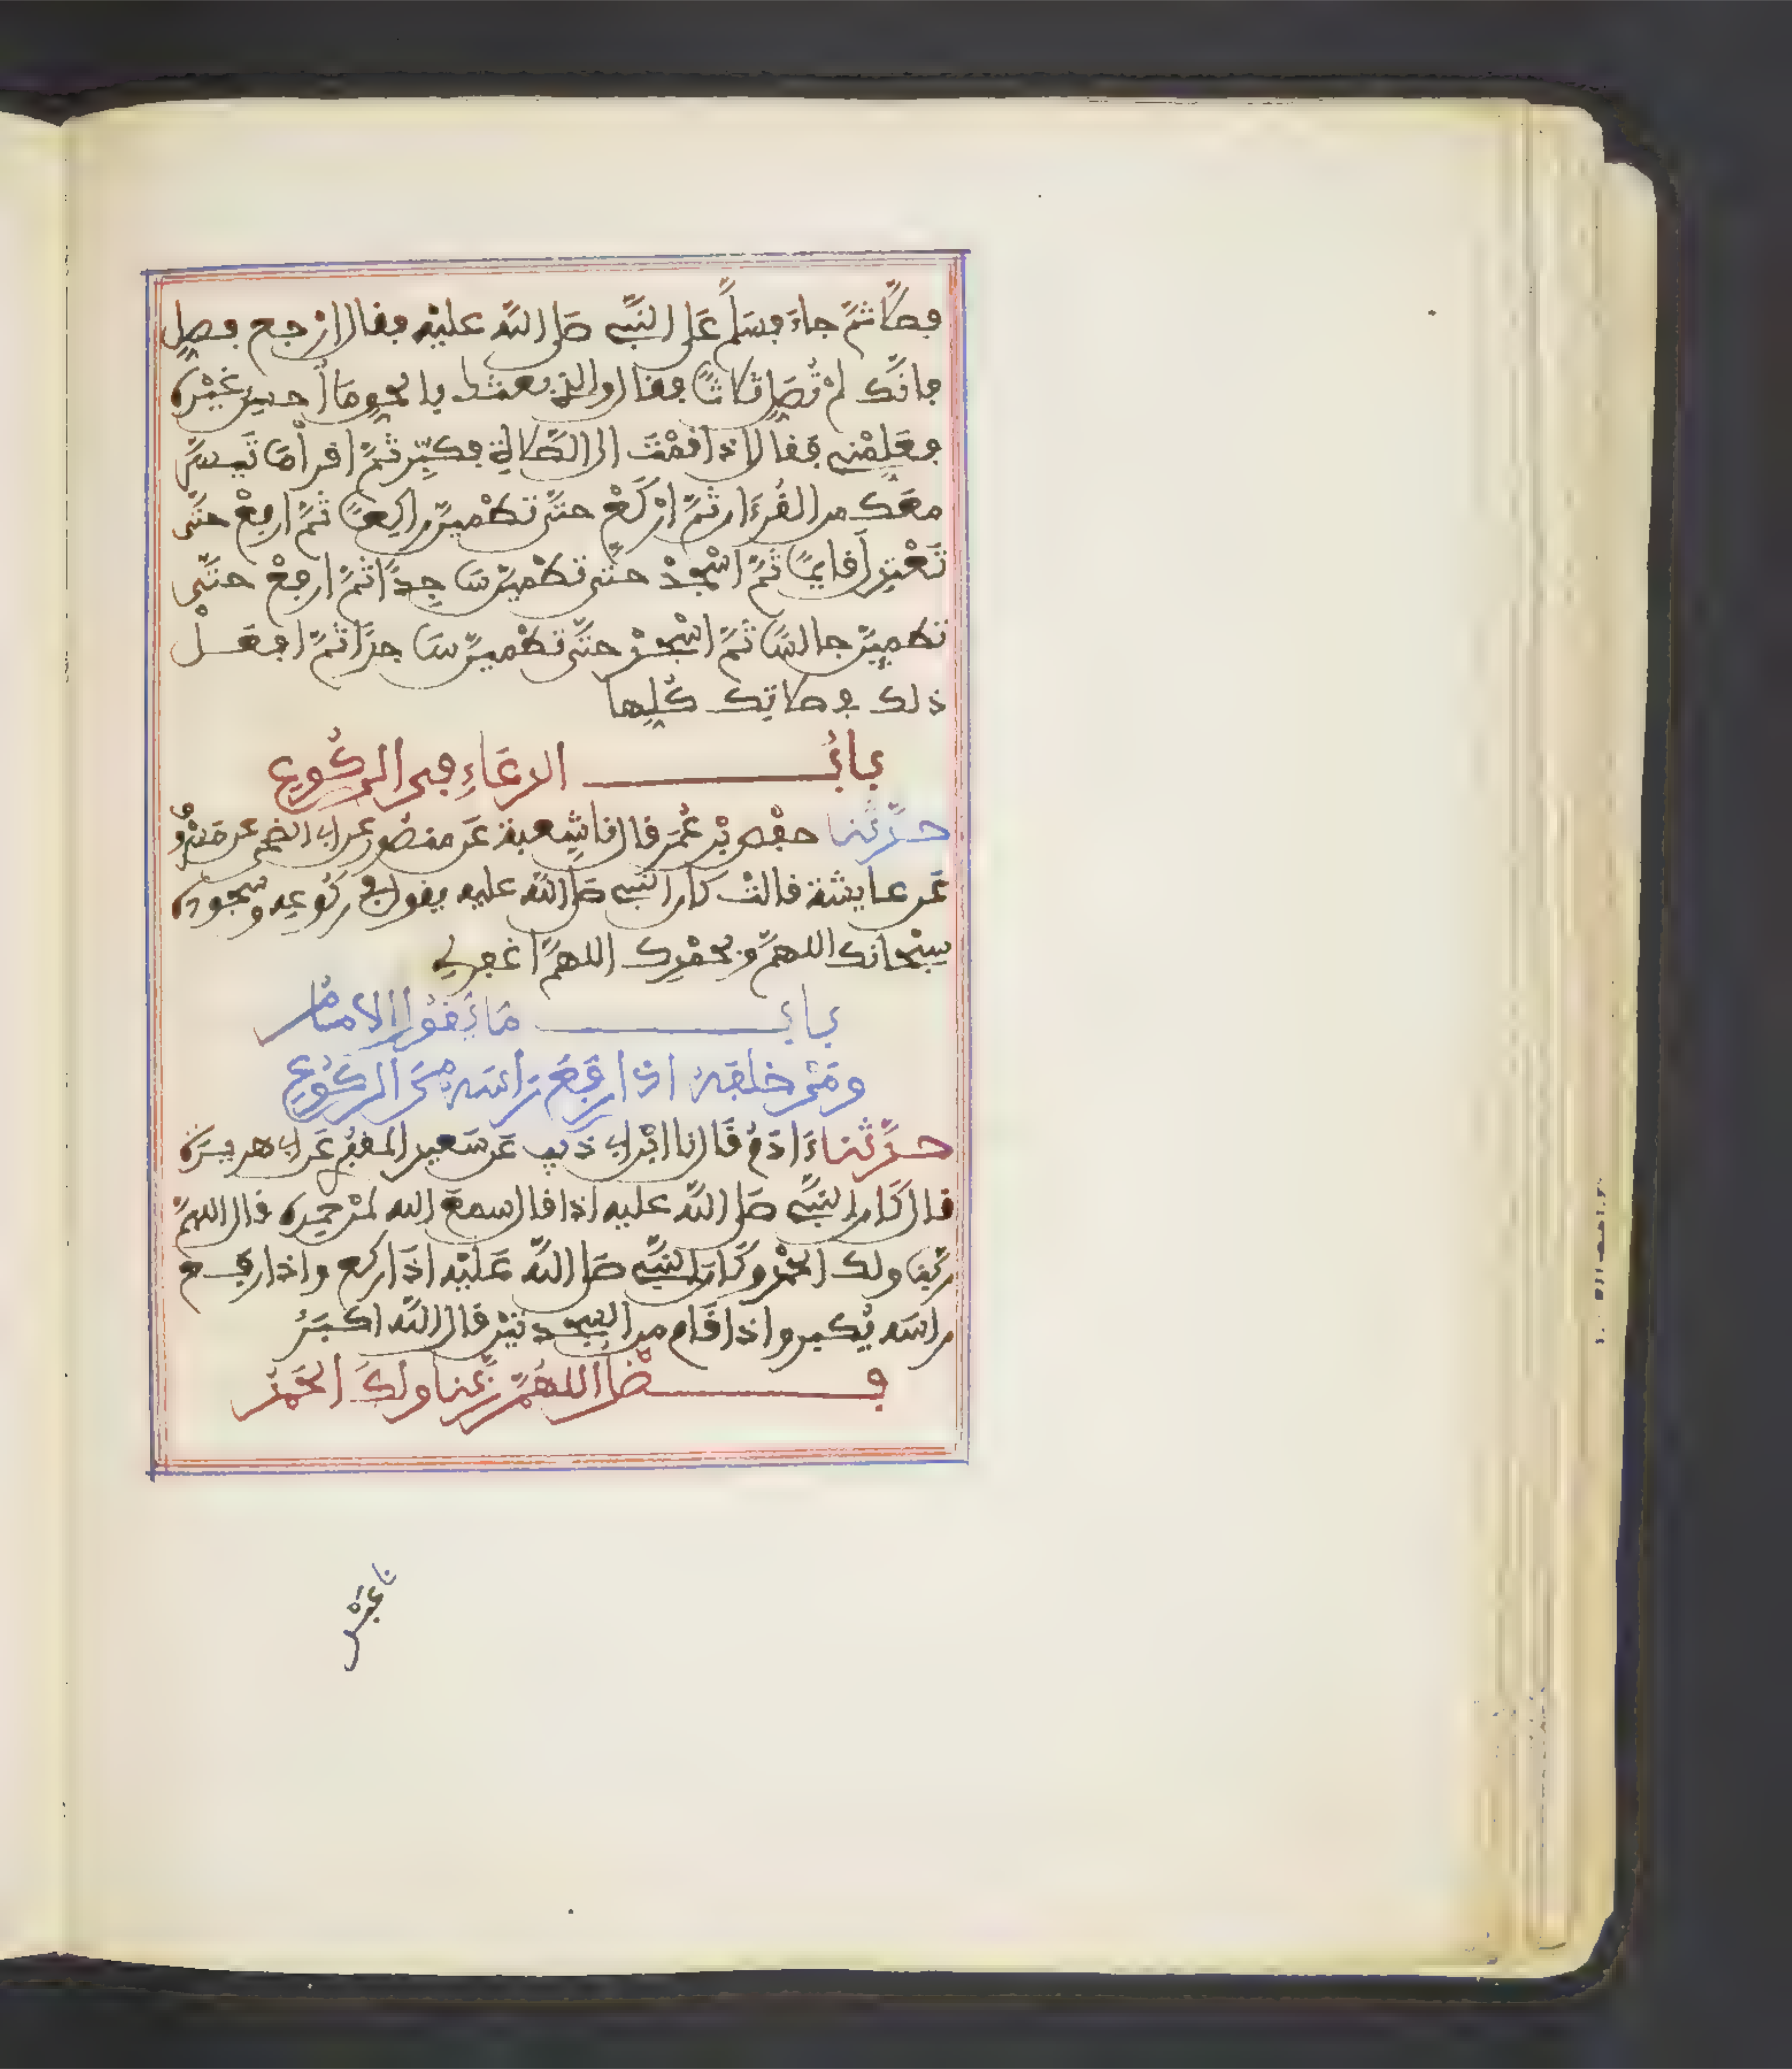 فصلّى ثمّ جاءَ فسَلّمَ عَلى النبيّ صَلى اللهُ عليْهِ فقال ارْجع فصلِّ
فإنّك لمْ تُصَلِّ ثلاثًا فقال والذي بعثك بالحق مَا أحسِن غيْره
فعَلِّمْنِي فقال إذا قمْتَ إلى الصّلاة فكبِّر ثمَّ اقرأ مَا تَيسّرَ
معَك من القُرْءان ثمَّ ارْكَعْ حتّى تطْمئنّ راكِعًا ثمَّ ارفعْ حتّى
تَعْتدِلَ قائمًا ثمَّ اسْجُدْ حتّى تطْمئنّ سَاجِدًا ثمَّ ارفعْ حتّى
تطمئنّ جالسًا ثمَّ اسْجُدْ حتّى تطْمئنّ سَاجدًا ثمَّ افعَلْ
ذلك في صلاتك كُلِّها
بابُ الدعَاءِ في الركُوع
حدّثنا حفْص بْن عُمَر قال نا شعبة عَن منصُور عن أبي الضحى عن مسْرُوق
عَن عايشة قالتْ كان النبي صَلى اللهُ عليه يقول في ركُوعه وسجوده
سبْحانك اللهمَّ وبحمْدِك اللهمَّ اغفر لي
بابُ مَا يَقُولُ الامَامُ
ومَنْ خلفَهُ اذا رفَعَ رَاسَه مِنَ الركُوع
حدّثنا ءَادَمُ قَال نا ابْن أبي ذئب عَن سَعيد المقبُري عَن أبي هريرَة
قال كَان النبيّ صَلى اللهُ عليه إذا قال سمعَ الله لمنْ حمِده قال اللهمَّ
ربّنا ولك الحمْد وكَان النبيّ صَلى اللهُ عَليْه إذَا ركع وإذا رفع
رأسَه يُكبر وإذا قَام من السجدتيْن قال اللهُ أكبَرُ
فضْل اللهُمَّ ربَّنا ولكَ الحَمْدُ
نا عبْد